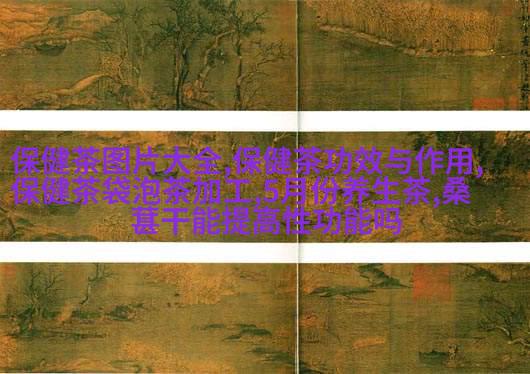 保健茶图片大全,保健茶功效与作用,
保健茶袋泡茶加工,5月份养生茶,桑
葚干能提高性功能吗